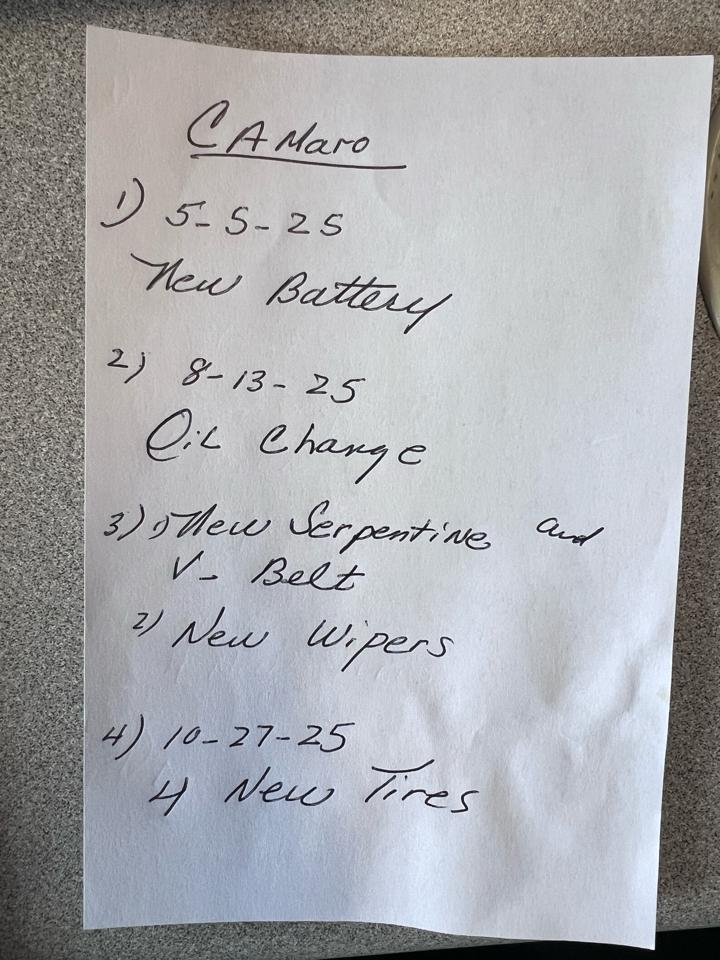 CAMaro
1) 5-5-25
New Battery
2) 8-13-25
Oil Change
3) 1) New Serpentine and
V- Belt
2) New Wipers
4) 10-27-25
4 New Tires